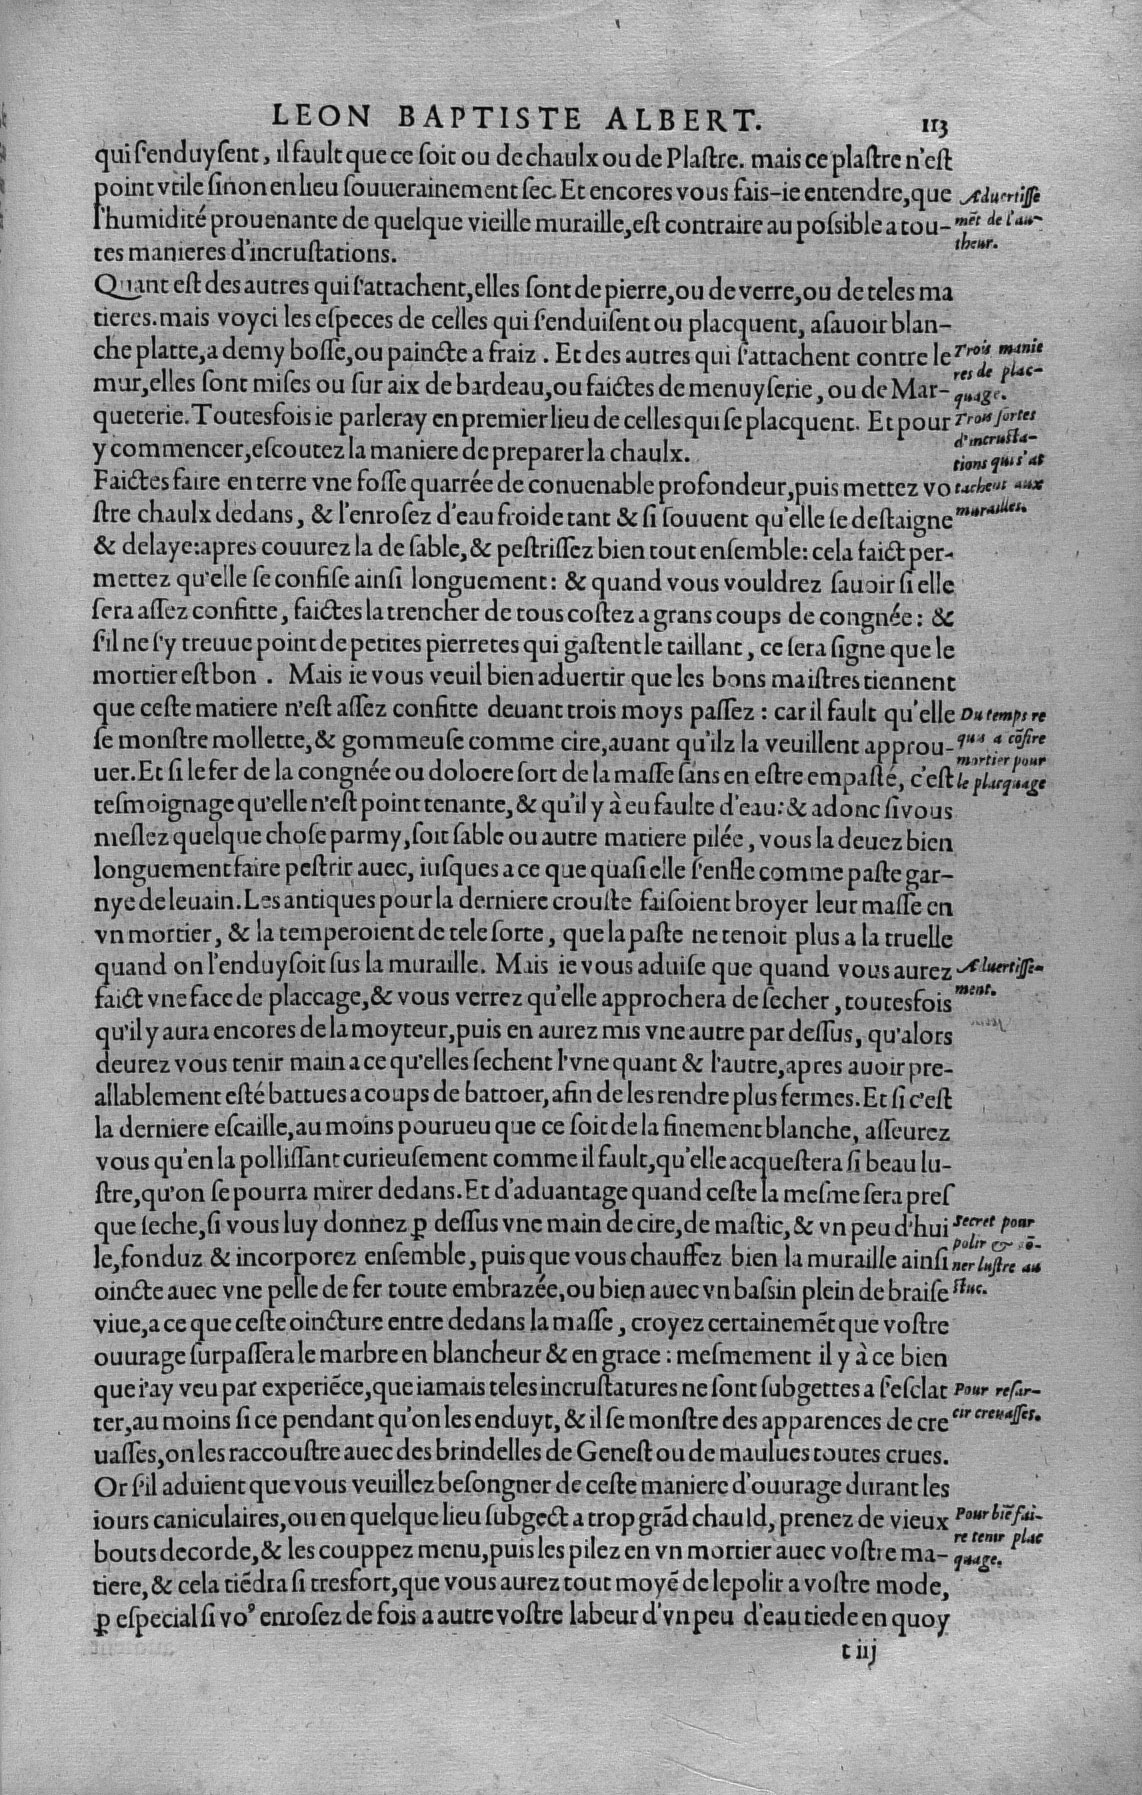 LEON BAPTISTE ALBERT. 113
qui ſ'enduyſent, il fault que ce ſoit ou de chaulx ou de Plaſtre. mais ce plaſtre n'eſt
point vtile ſinon en lieu ſouuerainement ſec. Et encores vous fais-ie entendre, que
l'humidité prouenante de quelque vieille muraille, eſt contraire au poſsible a tou-
tes manieres d'incruſtations.
Aduertiſſe
mẽt de l'au-
theur.
Quant eſt des autres qui ſ'attachent, elles ſont de pierre, ou de verre, ou de teles ma
tieres. mais voyci les eſpeces de celles qui ſ'enduiſent ou placquent, aſauoir blan-
che platte, a demy boſſe, ou paincte a fraiz. Et des autres qui ſ'attachent contre le
mur, elles ſont miſes ou ſur aix de bardeau, ou faictes de menuyſerie, ou de Mar-
queterie. Toutesfois ie parleray en premier lieu de celles qui ſe placquent. Et pour
y commencer, eſcoutez la maniere de preparer la chaulx.
Trois manie
res de plac-
quage.
Trois ſortes
d'incruſta-
tions qui s'at
tachent aux
murailles.
Faictes faire en terre vne foſſe quarrée de conuenable profondeur, puis mettez vo
ſtre chaulx dedans, & l'enroſez d'eau froide tant & ſi ſouuent qu'elle ſe deſtaigne
& delaye: apres couurez la de ſable, & peſtriſſez bien tout enſemble: cela faict per-
mettez qu'elle ſe confiſe ainſi longuement: & quand vous vouldrez ſauoir ſi elle
ſera aſſez confitte, faictes la trencher de tous coſtez a grans coups de congnée: &
ſ'il ne ſ'y treuue point de petites pierretes qui gaſtent le taillant, ce ſera ſigne que le
mortier eſt bon. Mais ie vous veuil bien aduertir que les bons maiſtres tiennent
que ceſte matiere n'eſt aſſez confitte deuant trois moys paſſez: car il fault qu'elle
ſe monſtre mollette, & gommeuſe comme cire, auant qu'ilz la veuillent approu-
uer. Et ſi le fer de la congnée ou doloere ſort de la maſſe ſans en eſtre empaſté, c'eſt
teſmoignage qu'elle n'eſt point tenante, & qu'il y à eu faulte d'eau: & adonc ſi vous
meſlez quelque choſe parmy, ſoit ſable ou autre matiere pilée, vous la deuez bien
longuement faire peſtrir auec, iuſques a ce que quaſi elle ſ'enfle comme paſte gar-
nye de leuain. Les antiques pour la derniere crouſte faiſoient broyer leur maſſe en
vn mortier, & la temperoient de tele ſorte, que la paſte ne tenoit plus a la truelle
quand on l'enduyſoit ſus la muraille. Mais ie vous aduiſe que quand vous aurez
faict vne face de placcage, & vous verrez qu'elle approchera de ſecher, toutesfois
qu'il y aura encores de la moyteur, puis en aurez mis vne autre par deſſus, qu'alors
deurez vous tenir main a ce qu'elles ſechent l'vne quant & l'autre, apres auoir pre-
allablement eſté battues a coups de battoer, afin de les rendre plus fermes. Et ſi c'eſt
la derniere eſcaille, au moins pourueu que ce ſoit de la finement blanche, aſſeurez
vous qu'en la polliſſant curieuſement comme il fault, qu'elle acqueſtera ſi beau lu-
ſtre, qu'on ſe pourra mirer dedans. Et d'aduantage quand ceſte la meſme ſera preſ
que ſeche, ſi vous luy donnez ꝑ deſſus vne main de cire, de maſtic, & vn peu d'hui
le, fonduz & incorporez enſemble, puis que vous chauffez bien la muraille ainſi
oincte auec vne pelle de fer toute embrazée, ou bien auec vn baſsin plein de braiſe
viue, a ce que ceſte oincture entre dedans la maſſe, croyez certainemẽt que voſtre
ouurage ſurpaſſera le marbre en blancheur & en grace: meſmement il y à ce bien
que i'ay veu par experiẽce, que iamais teles incruſtatures ne ſont ſubgettes a ſ'eſclat
ter, au moins ſi ce pendant qu'on les enduyt, & il ſe monſtre des apparences de cre
uaſſes, on les raccouſtre auec des brindelles de Geneſt ou de maulues toutes crues.
Du temps re
quis a cõfire
mortier pour
le placquage
Aduertiſſe-
ment.
Secret pour
polir & dõ-
ner luſtre au
ſtuc.
Pour reſar-
cir creuaſſes.
Or ſ'il aduient que vous veuillez beſongner de ceſte maniere d'ouurage durant les
iours caniculaires, ou en quelque lieu ſubgect a trop grãd chauld, prenez de vieux
bouts de corde, & les couppez menu, puis les pilez en vn mortier auec voſtre ma-
tiere, & cela tiẽdra ſi tresfort, que vous aurez tout moyẽ de le polir a voſtre mode,
ꝑ eſpecial ſi voꝰ enroſez de fois a autre voſtre labeur d'vn peu d'eau tiede en quoy
Pour biẽ fai-
re tenir plac
quage.
t iij